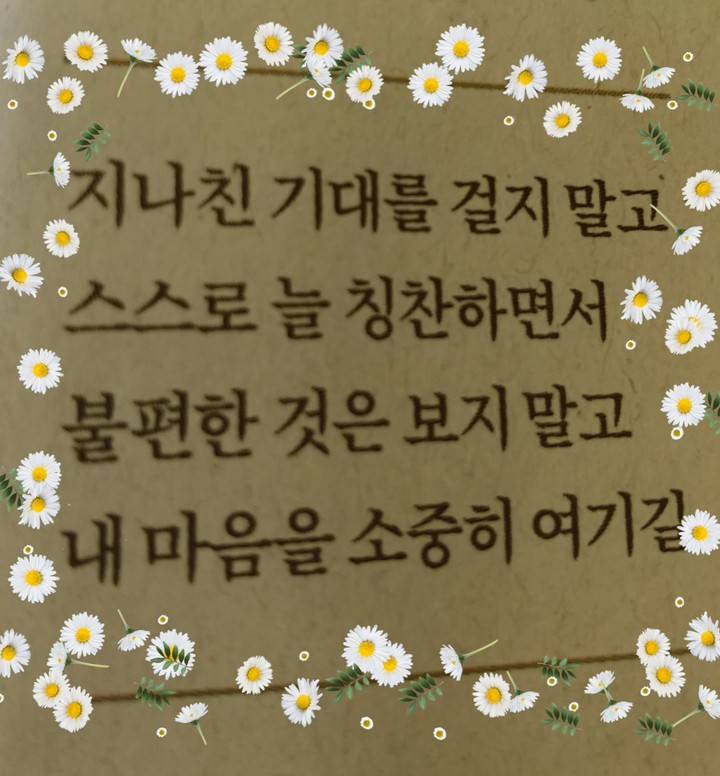 지나친 기대를 걸지 말고
스스로 늘 칭찬하면서
불편한 것은 보지 말고
내 마음을 소중히 여기길